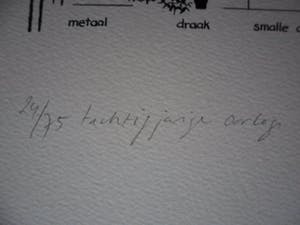 metaal draak smalle
24/75 tachtigjarige oorlog